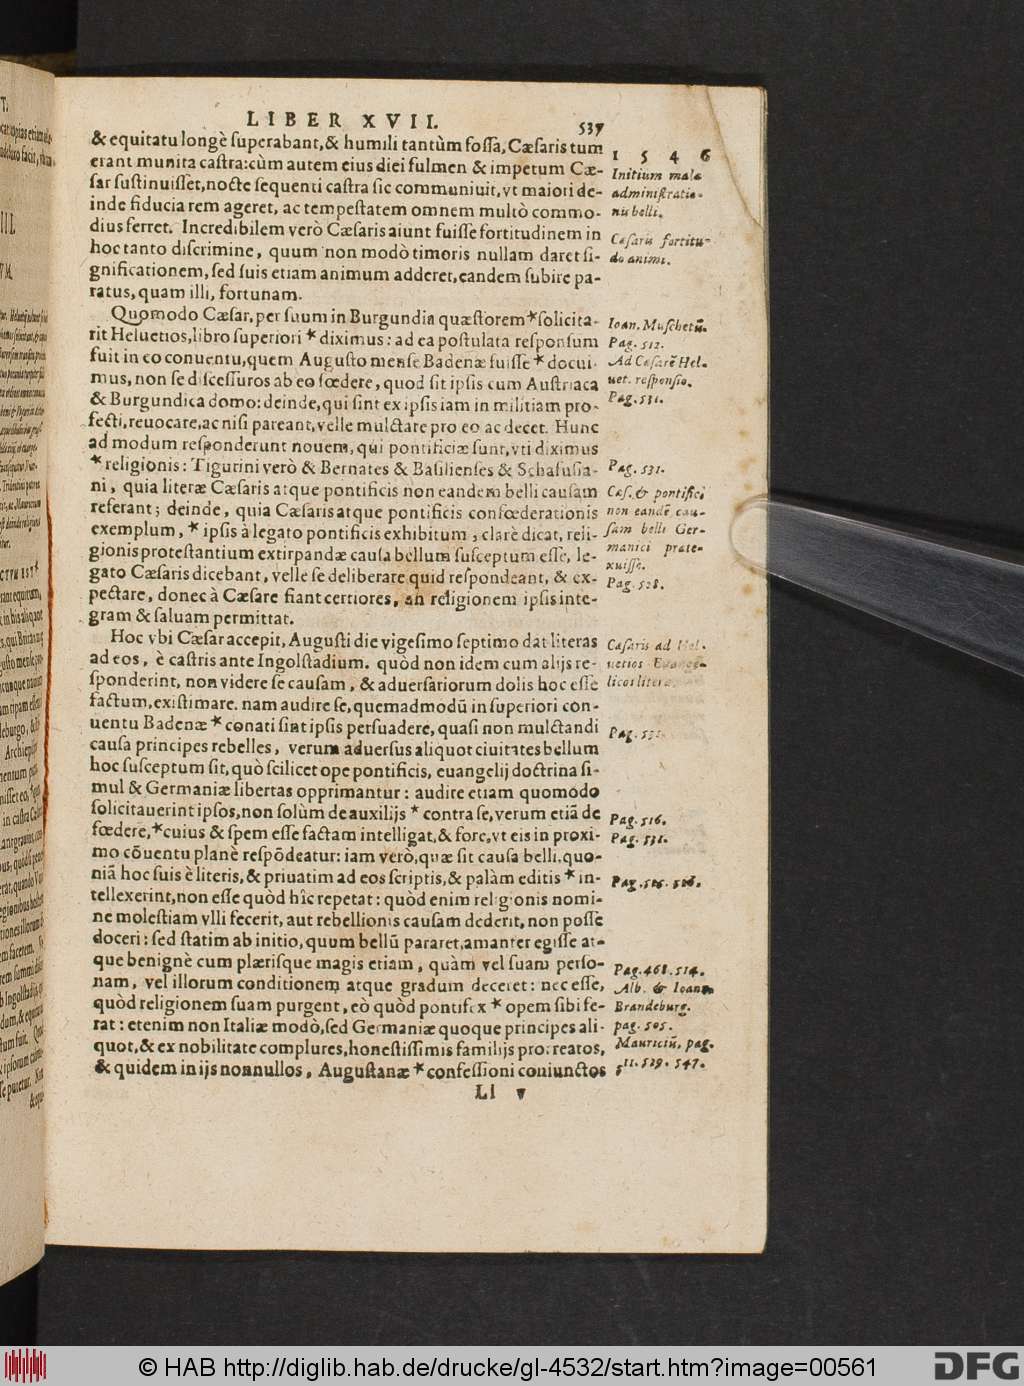 LIBER XVII. 537
& equitatu longè ſuperabant, & humili tantùm foſſa, Cæſaris tum
erant munita caſtra: cùm autem eius diei fulmen & impetum Cæ-
ſar ſuſtinuiſſet, nocte ſequenti caſtra ſic communiuit, vt maiori de-
inde fiducia rem ageret, ac tempeſtatem omnem multò commo-
dius ferret. Incredibilem verò Cæſaris aiunt fuiſſe fortitudinem in
hoc tanto diſcrimine, quum non modò timoris nullam daret ſi-
gnificationem, ſed ſuis etiam animum adderet, eandem ſubire pa-
ratus, quam illi, fortunam.
Quomodo Cæſar, per ſuum in Burgundia quæſtorem * ſolicita-
rit Heluetios, libro ſuperiori * diximus: ad ea poſtulata reſponſum
fuit in eo conuentu, quem Auguſto menſe Badenæ fuiſſe * docui-
mus, non ſe diſceſſuros ab eo fœdere, quod ſit ipſis cum Auſtriaca
& Burgundica domo: deinde, qui ſint ex ipſis iam in militiam pro-
fecti, reuocare, ac niſi pareant, velle mulctare pro eo ac decet. Hunc
ad modum reſponderunt nouem, qui pontificiæ ſunt, vti diximus
* religionis: Tigurini verò & Bernates & Baſilienſes & Schafuſia-
ni, quia literæ Cæſaris atque pontificis non eandem belli cauſam
referant; deinde, quia Cæſaris atque pontificis confœderationis
exemplum, * ipſis à legato pontificis exhibitum, clarè dicat, reli-
gionis proteſtantium extirpandæ cauſa bellum ſuſceptum eſſe, le-
gato Cæſaris dicebant, velle ſe deliberare quid reſpondeant, & ex-
pectare, donec à Cæſare fiant certiores, an religionem ipſis inte-
gram & ſaluam permittat.
Hoc vbi Cæſar accepit, Auguſti die vigeſimo ſeptimo dat literas
ad eos, è caſtris ante Ingolſtadium. quòd non idem cum alijs re-
ſponderint, non videre ſe cauſam, & aduerſariorum dolis hoc eſſe
factum, exiſtimare. nam audire ſe, quemadmodũ in ſuperiori con-
uentu Badenæ * conati ſint ipſis perſuadere, quaſi non mulctandi
cauſa principes rebelles, verum aduerſus aliquot ciuitates bellum
hoc ſuſceptum ſit, quò ſcilicet ope pontificis, euangelij doctrina ſi-
mul & Germaniæ libertas opprimantur: audire etiam quomodo
ſolicitauerint ipſos, non ſolùm de auxilijs * contra ſe, verum etiã de
fœdere, * cuius & ſpem eſſe factam intelligat, & fore, vt eis in proxi-
mo cõuentu planè reſpõdeatur: iam verò, quæ ſit cauſa belli, quo-
niã hoc ſuis è literis, & priuatim ad eos ſcriptis, & palàm editis * in-
tellexerint, non eſſe quòd hîc repetat: quòd enim religionis nomi-
ne moleſtiam vlli fecerit, aut rebellionis cauſam dederit, non poſſe
doceri: ſed ſtatim ab initio, quum bellũ pararet, amanter egiſſe at-
que benignè cum plæriſque magis etiam, quàm vel ſuam perſo-
nam, vel illorum conditionem atque gradum deceret: nec eſſe,
quòd religionem ſuam purgent, eò quòd pontifex * opem ſibi fe-
rat: etenim non Italiæ modò, ſed Germaniæ quoque principes ali-
quot, & ex nobilitate complures, honeſtiſſimis familijs procreatos,
& quidem in ijs nonnullos, Auguſtanæ * confeſſioni coniunctos
Ll v
1 5 4 6
Initium malæ
adminiſtratio-
nis belli.
Cæſaris fortitu-
do animi.
Ioan. Muſchetũ.
Pag. 512.
Ad Cæſarẽ Hel-
uet. reſponſio.
Pag. 531.
Pag. 531.
Cæſ. & pontifici
non eandẽ cau-
ſam belli Ger-
manici præte-
xuiſſe.
Pag. 528.
Cæſaris ad Hel-
uetios Euange-
licos literæ.
Pag. 516.
Pag. 531.
Pag. 468. 514.
Alb. & Ioann
Brandeburg.
pag. 505.
Mauriciũ, pag.
511. 529. 547.
© HAB http://diglib.hab.de/drucke/gl-4532/start.htm?image=00561
DFG